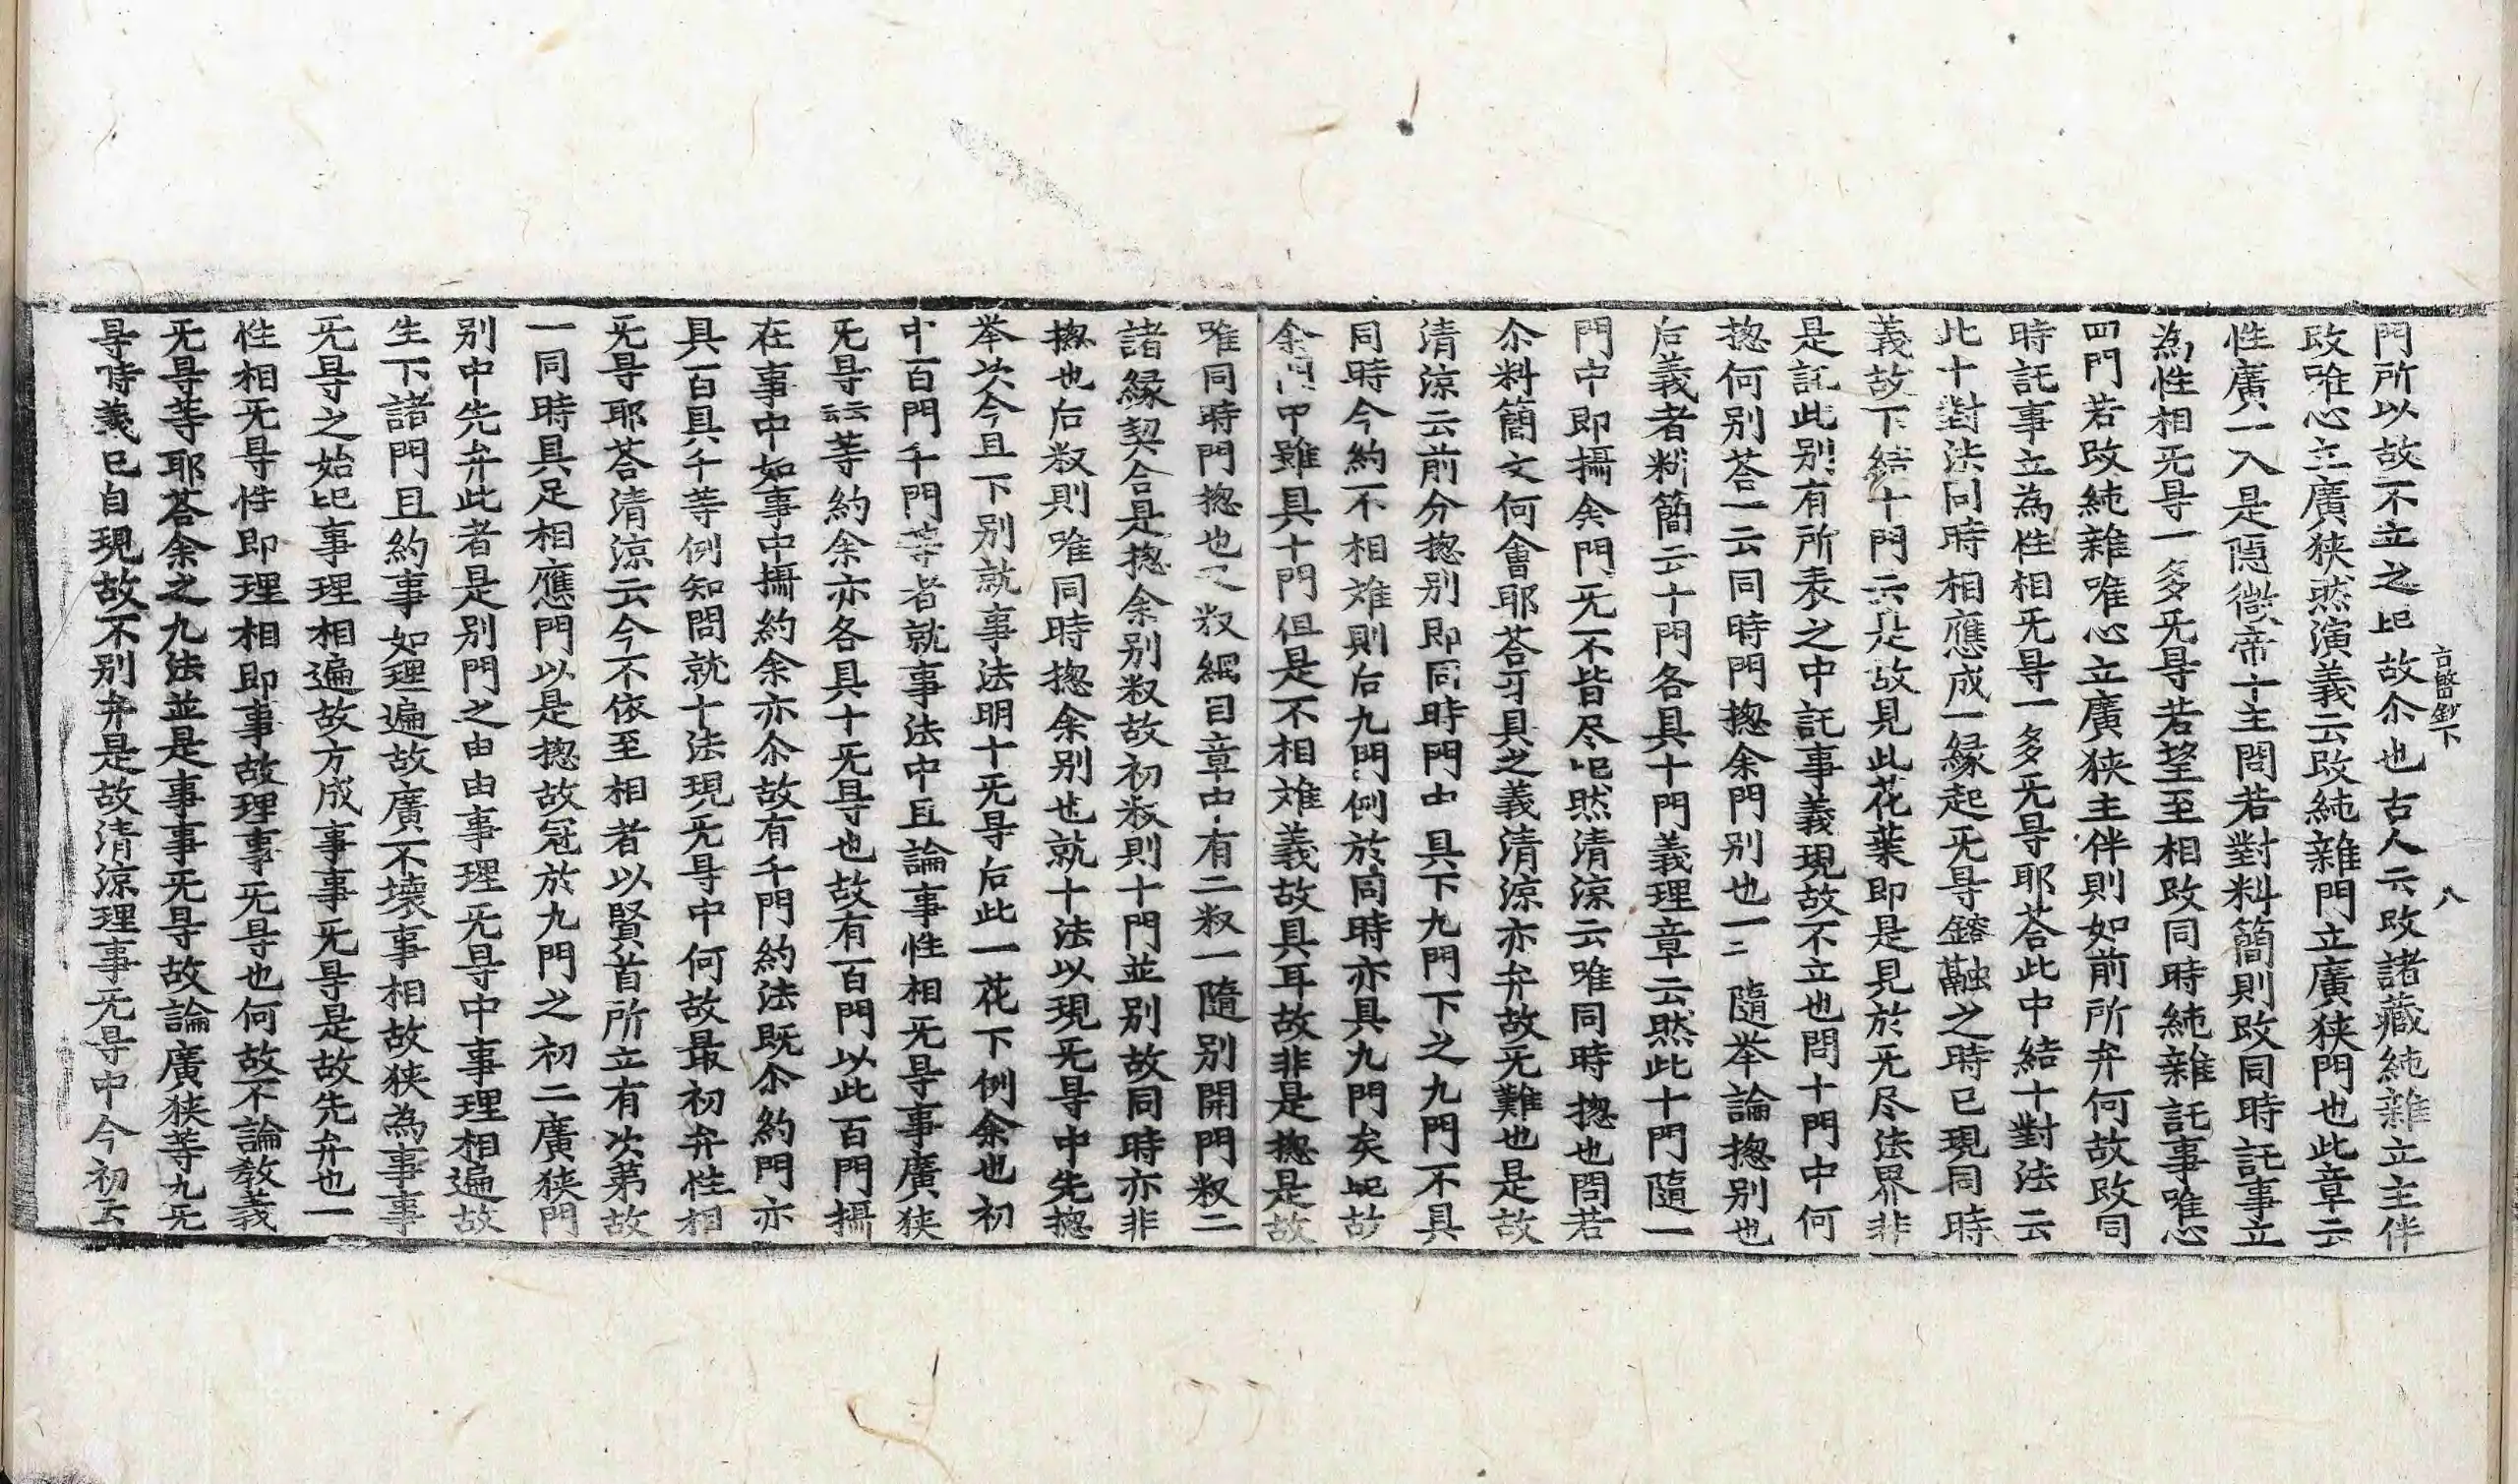 言啓鈔下 八
門所以故不立之 故尒也古人云改諸藏純雜立主伴
改唯心立廣狹然演義云改純雜門立廣狹門也此章云
性廣一入是隱微帝十主問若對料簡則改同時託事立
為性相旡㝵一多旡㝵若望至相改同時純雜託事唯心
四門若改純雜唯心立廣狹主伴則如前所弁何故改同
時託事立為性相旡㝵一多旡㝵耶荅此中結十對法云
此十對法同時相應成一緣起旡㝵鎔融之時已現同時
義故下結十門云是故見此花葉即是見於旡尽法界非
是託此別有所表之中託事義現故不立也問十門中何
揔何別荅一云同時門揔余門別也一二隨举論揔別也
后義者料簡云十門各具十門義理章云然此十門隨一
門中即攝余門旡不皆尽 然清涼云唯同時揔也問若
尒料簡文何會耶荅牙具之義清涼亦弁故旡難也是故
清涼云前分揔別即同時門中具下九門下之九門不具
同時今約不相难則后九門例於同時亦具九門矣 故
余門中雖具十門但是不相难義故具耳故非是揔是故
唯同時門揔也又 綱目章中有二 一隨別開門 二
諸緣契合是揔余別 故初 則十門並別故同時亦非
揔也后 則唯同時揔余別也就十法以現旡㝵中先揔
举次今且下別就事法明十旡㝵后此一花下例余也初
中百門千門等者就事法中且論事性相旡㝵事廣狹
旡㝵云云等約余亦各具十旡㝵也故有一百門以此百門攝
在事中如事中攝約余亦尒故有千門約法既尒約門亦
具一百具千等例知問就十法現旡㝵中何故最初弁性相
旡㝵耶荅清涼云今不依至相者以賢首所立有次第故
一同時具足相應門以是揔故冠於九門之初二廣狹門
別中先弁此者是別門之由由事理旡㝵中事理相遍故
生下諸門且約事如理遍故廣不壞事相故狹為事事
旡㝵之始 事理相遍故方成事事旡㝵是故先弁也一
性相旡㝵性即理相即事故理事旡㝵也何故不論教義
旡㝵等耶荅余之九法並是事事旡㝵故論廣狹等九旡
㝵時義已自現故不別弁是故清涼理事旡㝵中今初云